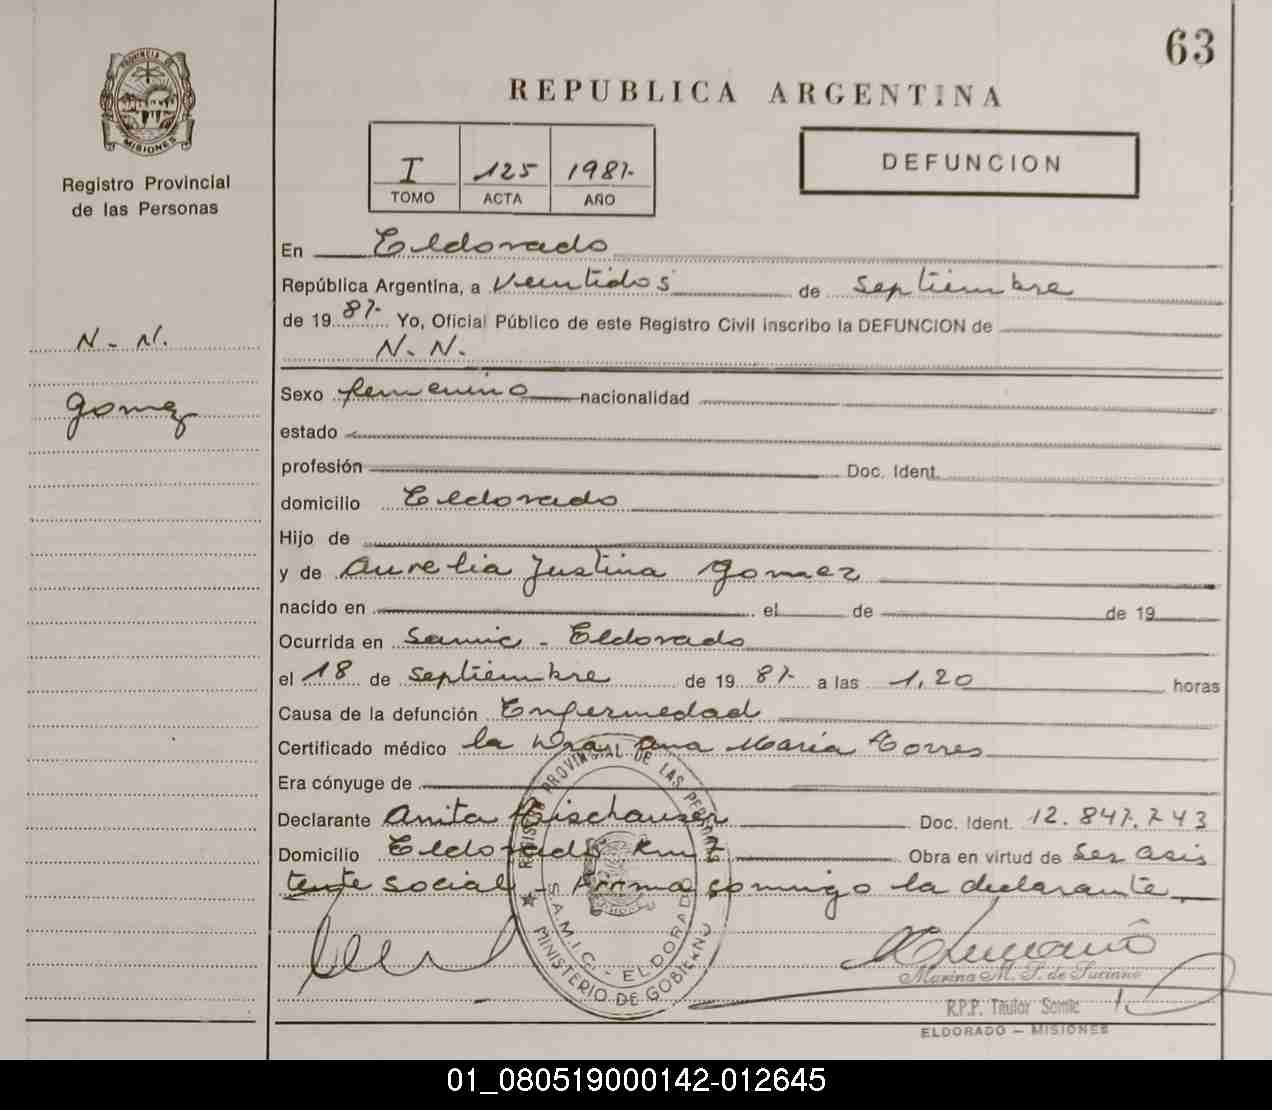 63
PROVINCIA DE
MISIONES
Registro Provincial
de las Personas
REPUBLICA ARGENTINA
I 125 1987.
TOMO ACTA AÑO
DEFUNCION
N. N.
Gomez
En Eldorado
República Argentina, a veintidos de septiembre
de 19 87. Yo, Oficial Público de este Registro Civil inscribo la DEFUNCION de
N. N.
Sexo femenino nacionalidad
estado
profesión Doc. Ident.
domicilio Eldorado
Hijo de
y de Aurelia Justina Gomez
nacido en el de de 19
Ocurrida en Samic - Eldorado
el 18 de septiembre de 19 87. a las 1,20 horas
Causa de la defunción Enfermedad
Certificado médico la Dra Ana Maria Torres
Era cónyuge de
Declarante Anita Doc. Ident. 12.847.743
Domicilio Eldorado Km Obra en virtud de ser asis
tente social - Firma comigo la declarante
REGISTRO PROVINCIAL DE LAS PERSONAS
S.A.M.I.C. - ELDORADO
MINISTERIO DE GOBIERNO
Marina M. de
R.P.P. Titular Samic
ELDORADO – MISIONES
01_080519000142-012645